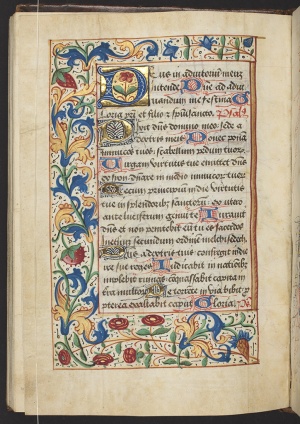 Deus in adiutoriũ meuz
intende. Dñe ad adiu
uandum me festina.
Gloria pr̃i et filio et sp̃ui sancto. ps̃
Dixit dñs domino meo: sede a
dextris meis. Donec ponã
inimicos tuos: scabellum pedum tuoꝝ.
Virgam virtutis tue emittet dñs
dominare in medio inimicoꝝ tuoꝝ
Tecum principiũ in die virtutis
tue in splendoribꝰ sanctoꝝ: ex utero
ante luciferum genui te. Iurauit
dñs et non penitebit eũ: tu es sacerdos
in eternũ secundum ordinẽ melchisedech.
Dñs a dextris tuis confregit in die
ire sue reges. Iudicabit in nationibꝰ
implebit ruinas: cõquassabit capita in
terra multoꝝ. De torrente in via bibet: ꝓ
pterea exaltabit caput. Gloria